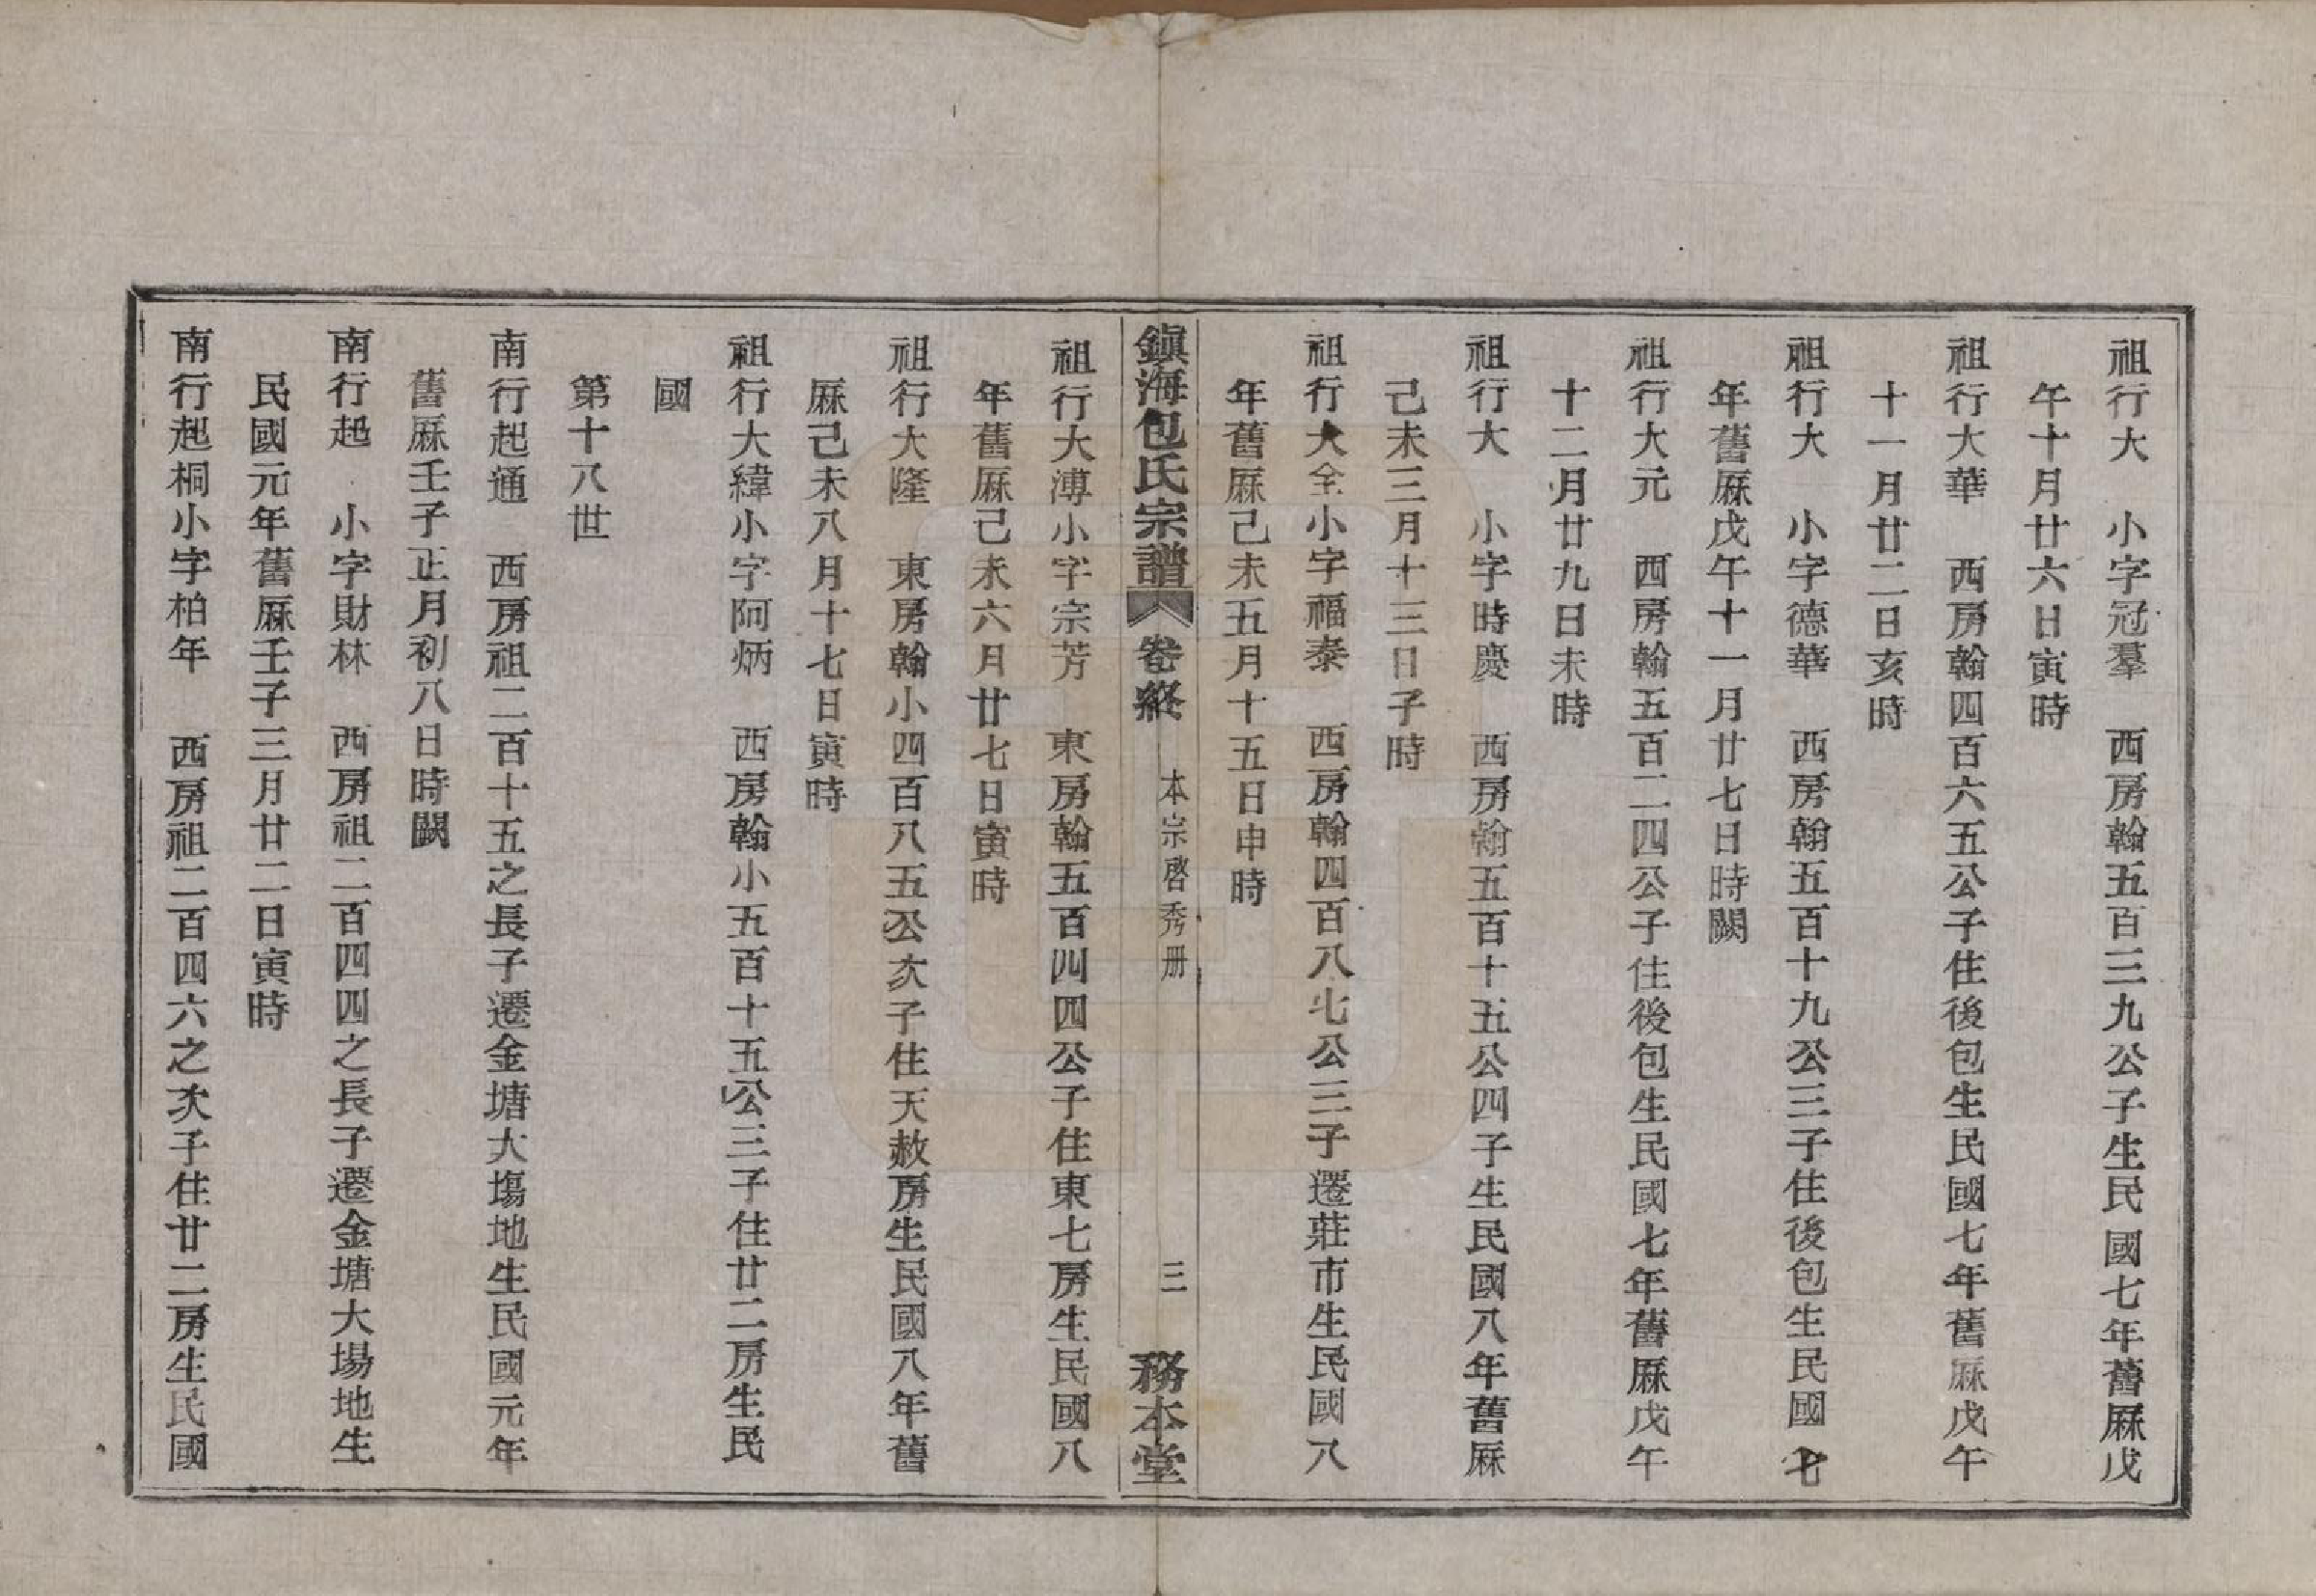 祖行大　小字冠羣　西房翰五百三九公子生民國七年舊厤戊
午十月廿六日寅時
祖行大華　西房翰四百六五公子住後包生民國七年舊厤戊午
十一月廿二日亥時
祖行大　小字德華　西房翰五百十九公三子住後包生民國七
年舊厤戊午十一月廿七日時闕
祖行大元　西房翰五百二四公子住後包生民國七年舊厤戊午
十二月廿九日未時
祖行大　小字時慶　西房翰五百十五公四子生民國八年舊厤
己未三月十三日子時
祖行大全小字福泰　西房翰四百八七公三子遷莊市生民國八
年舊厤己未五月十五日申時
鎭海包氏宗譜　卷終　本宗啓秀册　三　務本堂
祖行大溥小字宗芳　東房翰五百四四公子住東七房生民國八
年舊厤己未六月廿七日寅時
祖行大隆　東房翰小四百八五公次子住天赦房生民國八年舊
厤己未八月十七日寅時
祖行大緯小字阿炳　西房翰小五百十五公三子住廿二房生民
國
第十八世
南行起通　西房祖二百十五之長子遷金塘大塲地生民國元年
舊厤壬子正月初八日時闕
南行起　小字財林　西房祖二百四四之長子遷金塘大場地生
民國元年舊厤壬子三月廿二日寅時
南行起桐小字柏年　西房祖二百四六之次子住廿二房生民國